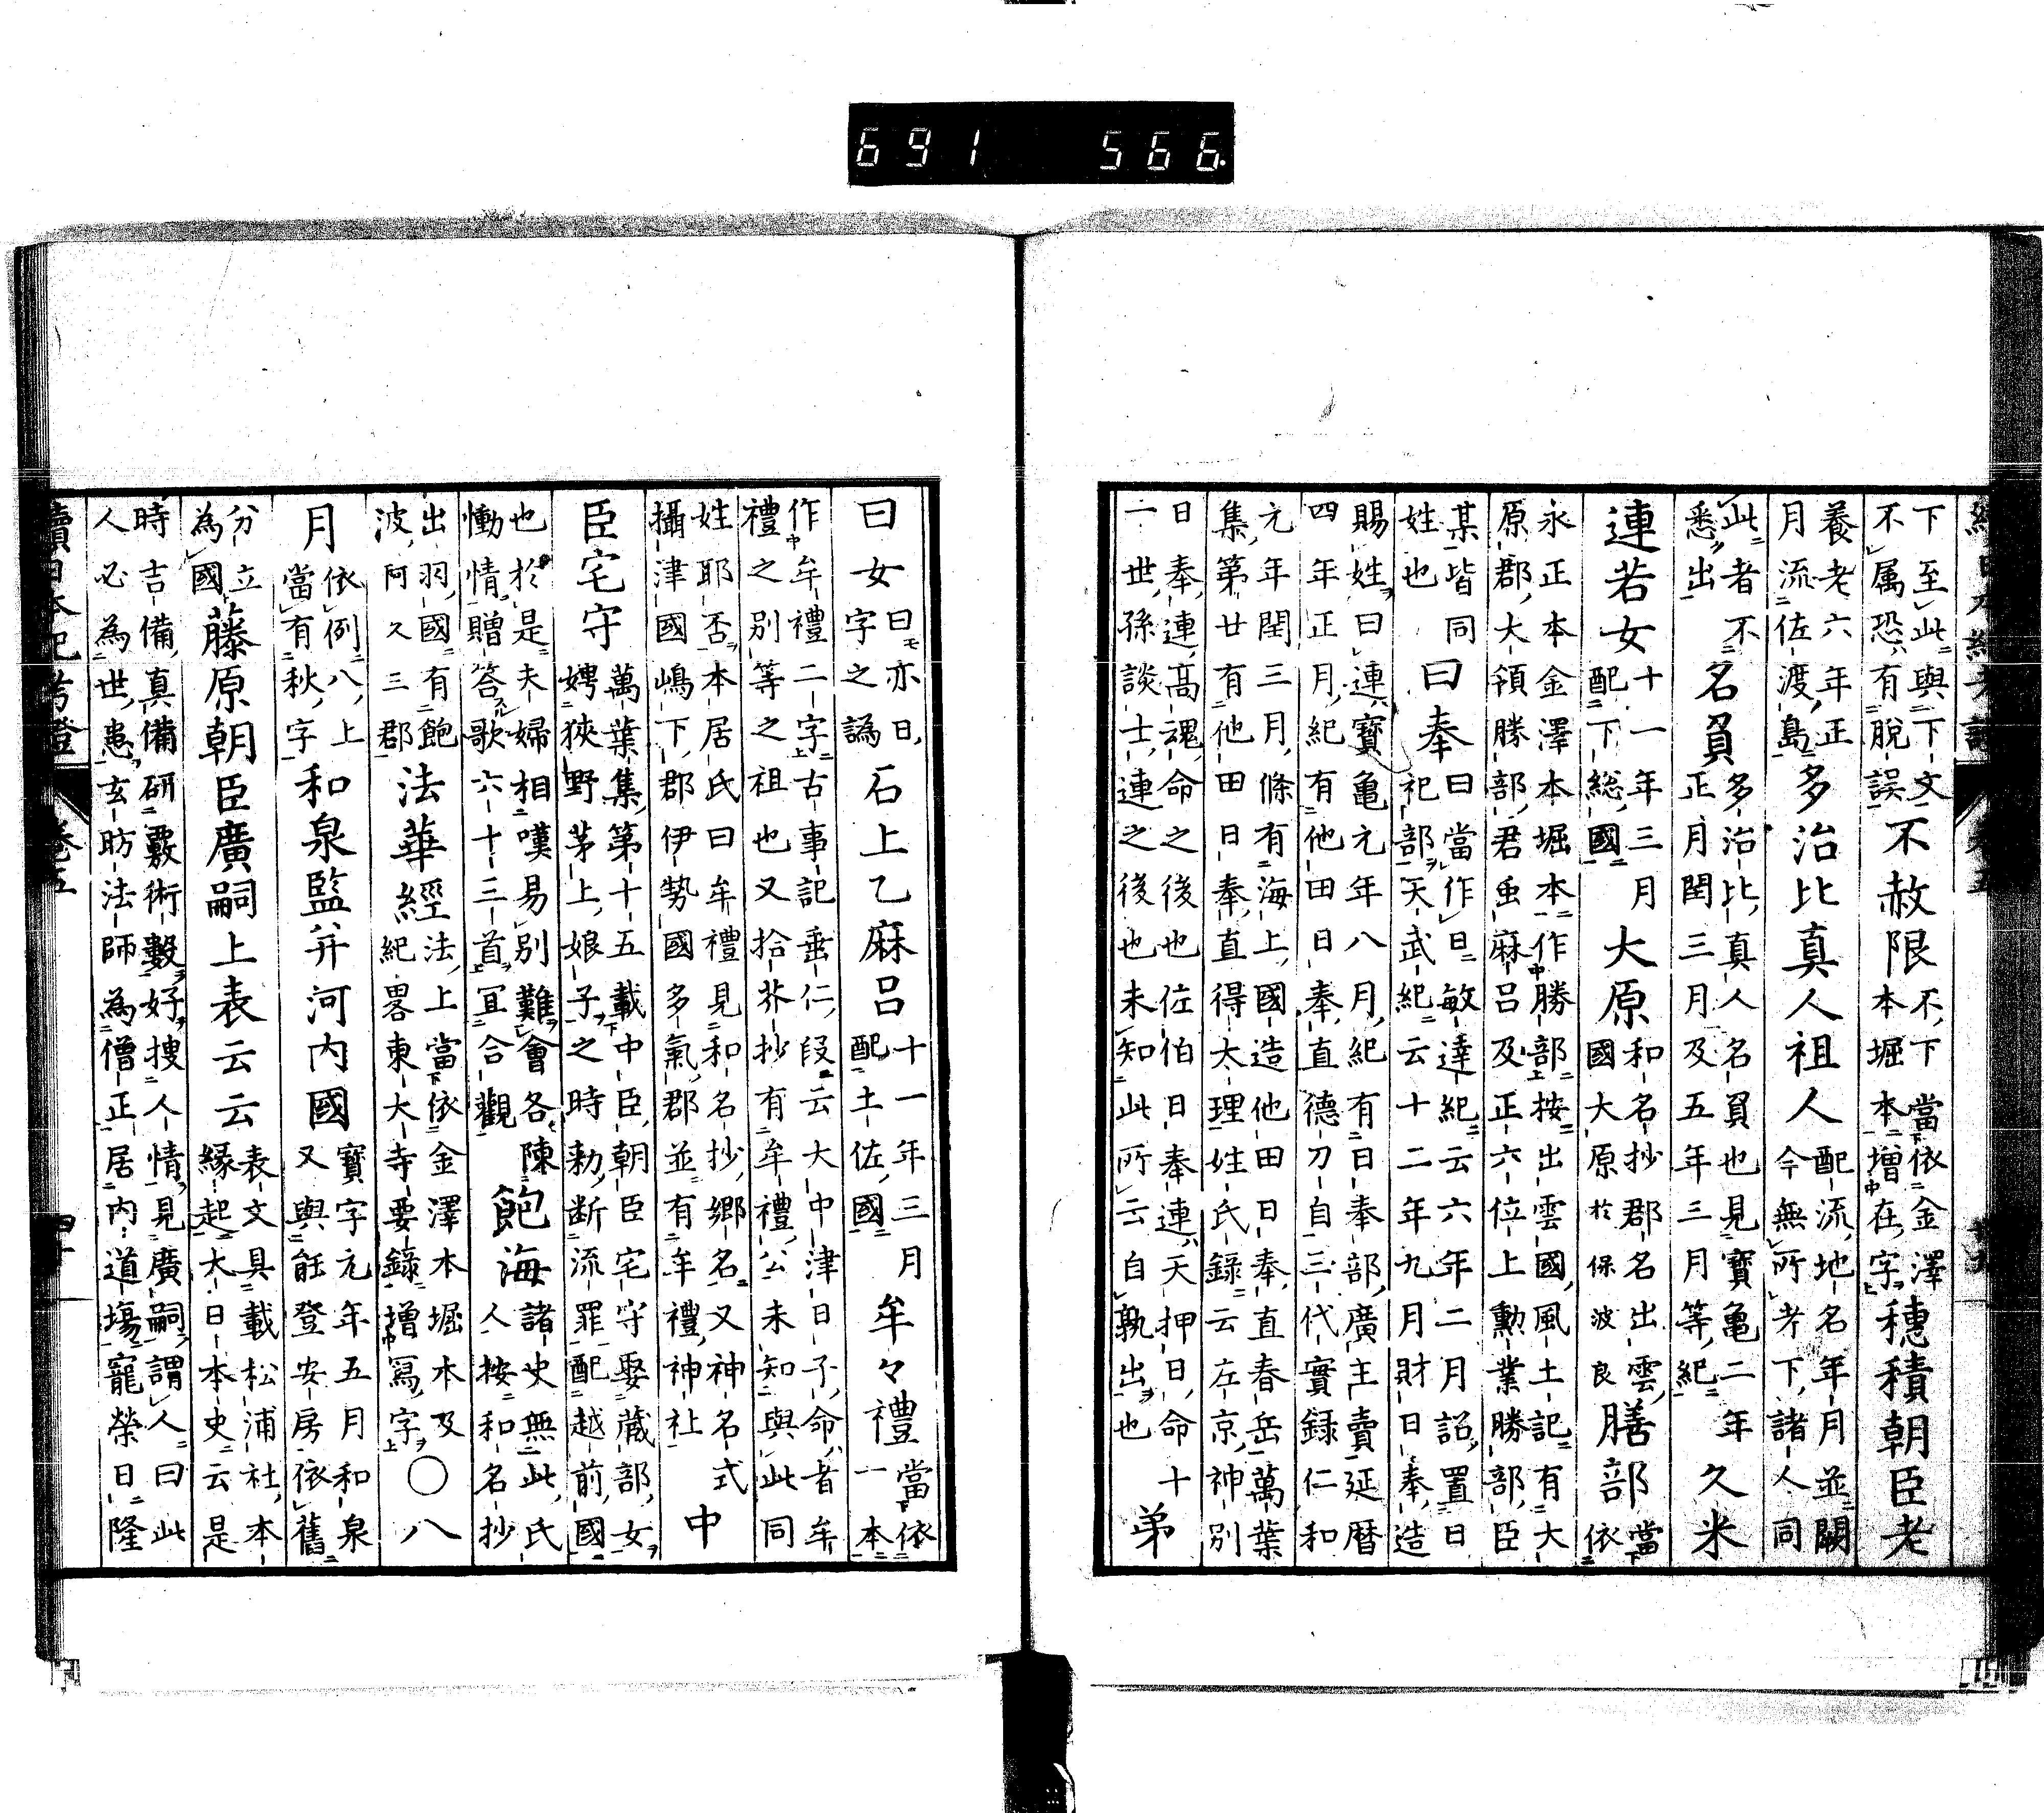 下至此與下文
不属恐有脫誤
不赦限
不下當依金澤
本堀本增在字
穗積朝臣老
養老六年正
月流佐渡島
多治比真人祖人
配流地名年月並闕
今無所考下諸人同
此者不
悉出
名負
多治比真人名負也見寶亀二年
正月閏三月及五年三月等紀
久米
連若女
十一年三月
配下総國
大原
和名抄郡名出雲
國大原於保波良
膳部
當
依
永正本金澤本堀本作勝部按出雲國風土記有大
原郡大領勝部君虫麻呂及正六位上勳業勝部臣
某皆同
姓也
曰奉
曰當作日敏達紀云六年二月詔置日
祀部天武紀云十二年九月財日奉造
賜姓曰連寶亀元年八月紀有日奉部廣主賣延暦
四年正月紀有他田日奉直德刀自三代實録仁和
元年閏三月條有海上國造他田日奉直春岳萬葉
集第廿有他田日奉直得太理姓氏録云左京神別
日奉連髙魂命之後也佐伯日奉連天押日命十
一世孫談士連之後也未知此所云自孰出也
弟
曰女
曰亦日
字之譌
石上乙麻呂
十一年三月
配土佐國
牟々禮
當依
一本
作牟禮二字古事記垂仁段云大中津日子命者牟
禮之別等之祖也又拾芥抄有牟禮公未知與此同
姓耶否本居氏曰牟禮見和名抄郷名又神名式
攝津國嶋下郡伊勢國多氣郡並有牟禮神社
中
臣宅守
萬葉集第十五載中臣朝臣宅守娶蔵部女
娉狹野茅上娘子之時勅断流罪配越前國
也於是夫婦相嘆易別難會各陳
慟情贈答歌六十三首宜合觀
飽海
諸史無此氏
人按和名抄
出羽國有飽
波阿久三郡
法華經
法上當依金澤本堀本及
紀畧東大寺要録增寫字
○八
月
依例八上
當有秋字
和泉監并河内國
寶字元年五月和泉
又與能登安房依舊
分立
為國
藤原朝臣廣嗣上表云云
表文具載松浦社本
縁起大日本史云是
時吉備真備研覈術數好搜人情見廣嗣謂人曰此
人必為世患玄昉法師為僧正居内道場寵榮日隆
續日本紀考證
卷五
691 566